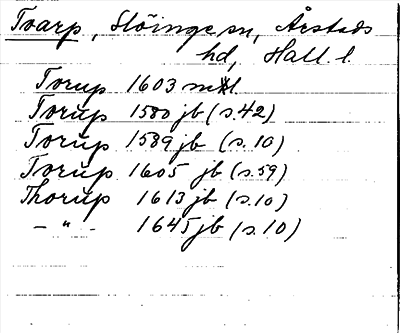 Tvarp, Slöinge sn, Årstads
hd, Hall. l.
Torup 1603 mtl
Torup 1580 jb (s.42)
Torup 1589 jb (s.10)
Torup 1605 jb (s.59)
Thorup 1613 jb (s.10)
– " – 1645 jb (s.10)